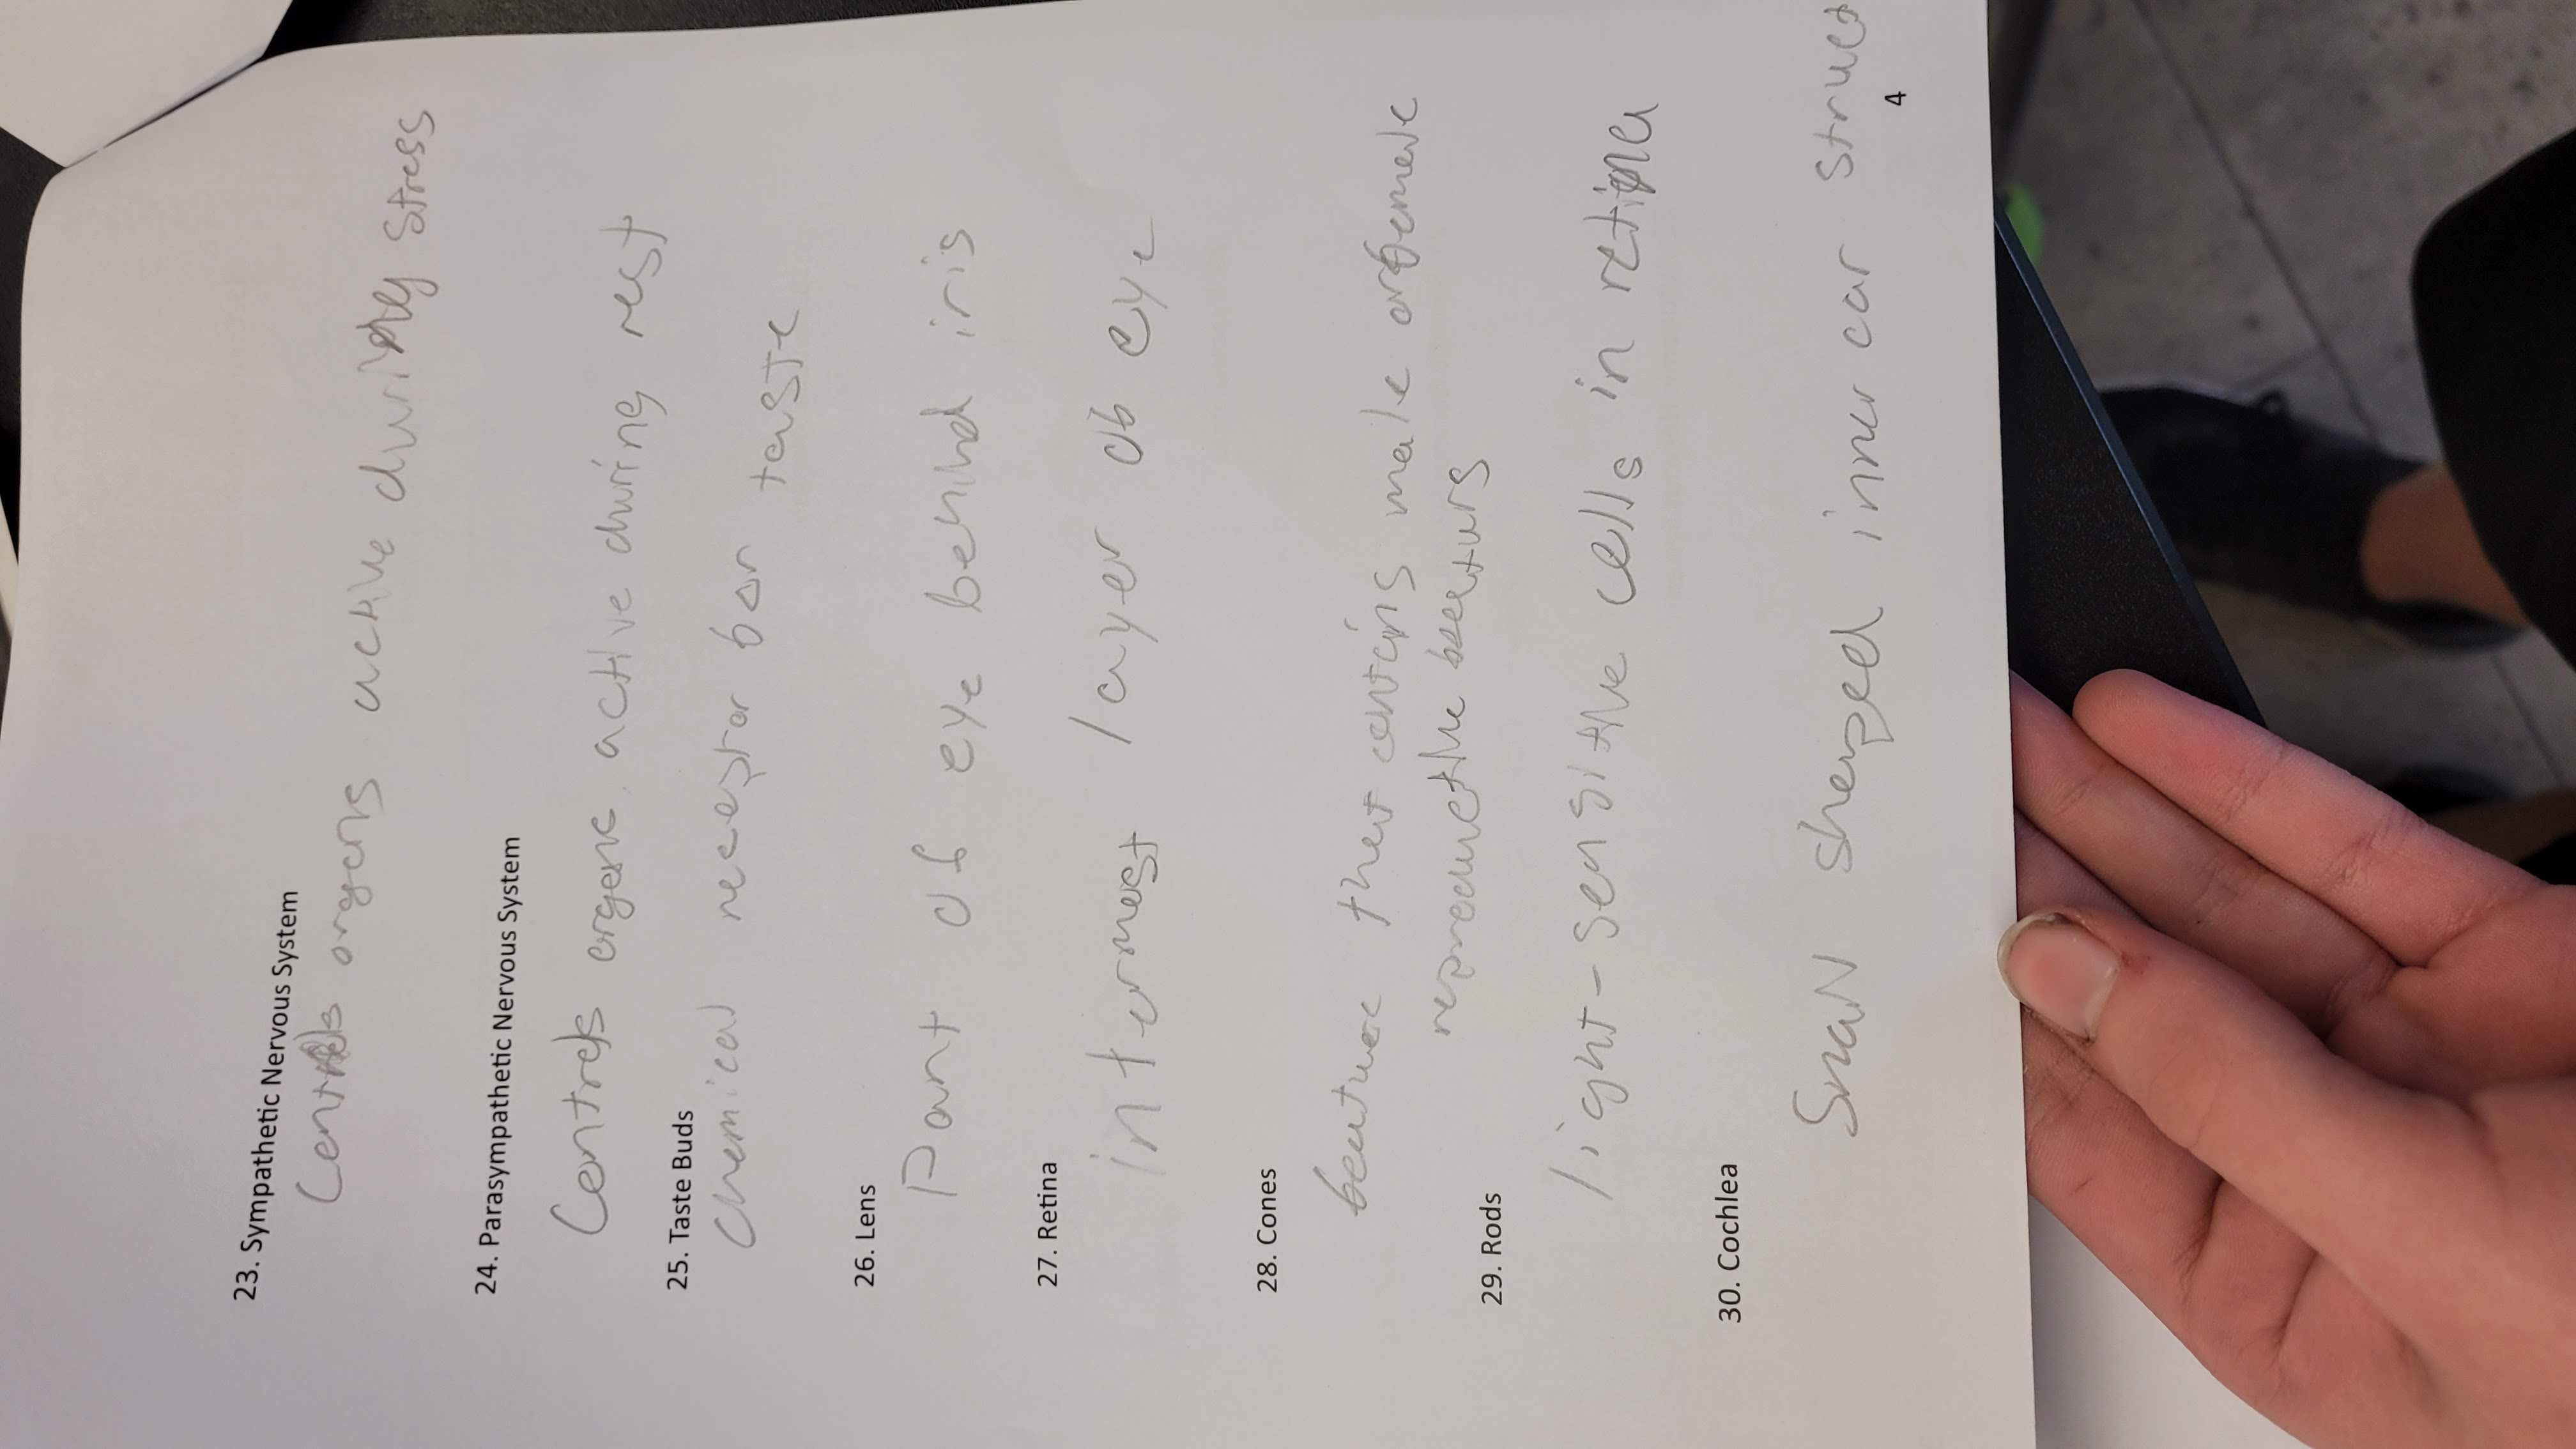 23. Sympathetic Nervous System
Controls organs active during stress
24. Parasympathetic Nervous System
Controls organs active during rest
25. Taste Buds
Chemical receptor for taste
26. Lens
Part of eye behind iris
27. Retina
innermost layer of eye
28. Cones
feature that contains male or female
reproductive features
29. Rods
light-sensitive cells in retina
30. Cochlea
Snail shaped inner ear struct
4